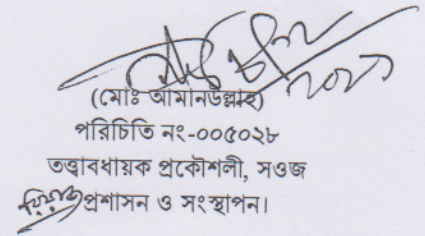 (মোঃ আমানউল্লাহ)
পরিচিতি নং-০০৫০২৮
তত্ত্বাবধায়ক প্রকৌশলী, সওজ
প্রশাসন ও সংস্থাপন।